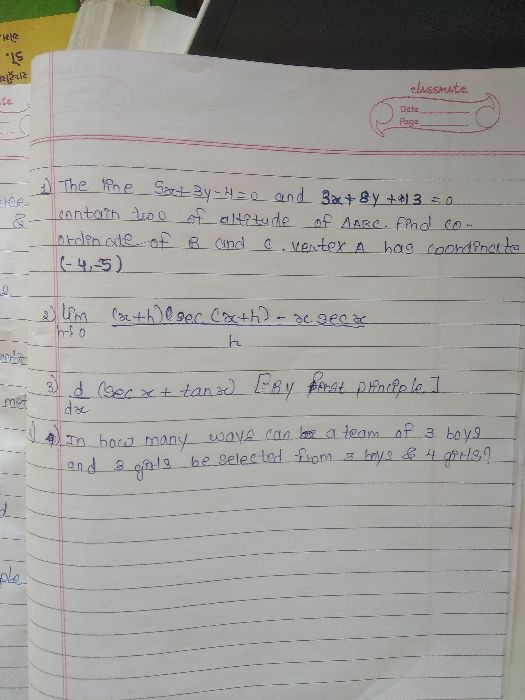 classmate
Date
Page
1) The line 5x+3y-4=0 and 3x+8y+13=0
contain two of altitude of ΔABC. find co-
ordinate of B and C. vertex A has coordinate
(-4,-5)
2) lim (x+h) sec (x+h) - x secx
h→0 h
3) d (sec x + tan x) [By first principle]
dx
4) In how many ways can be a team of 3 boys
and 3 girls be selected from 5 boys & 4 girls?